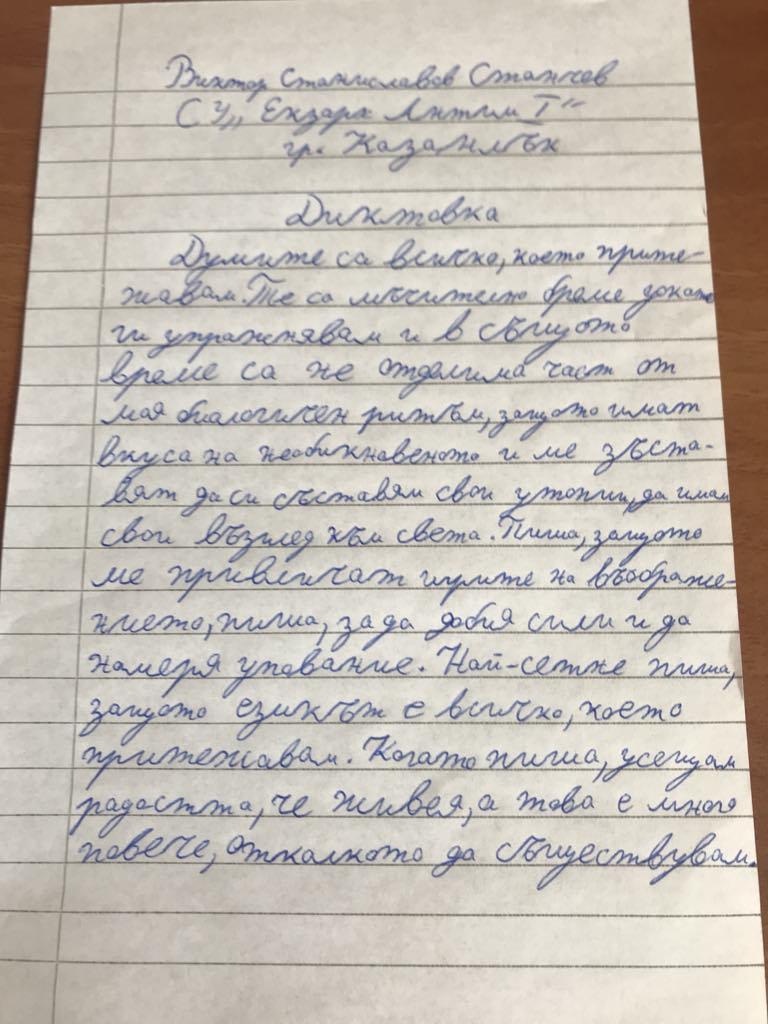 Виктор Станиславов Станчев
СУ „Екзарх Антим I“
гр. Казанлък
Диктовка
Думите са всичко, което прите-
жавам. Те са мъчително бреме докато
ги упражнявам и в същото
време са не отделима част от
моя биологичен ритъм, защото имат
вкуса на необикновеното и ме зъста-
вят да си съставям свои утопии, да имам
свои възглед към света. Пиша, защото
ме привличат игрите на въображе-
нието, пиша, за да добия сили и да
намеря упование. Най-сетне пиша,
защото езикът е всичко, което
притежавам. Когато пиша, усещам
радостта, че живея, а това е много
повече, отколкото да съществувам.